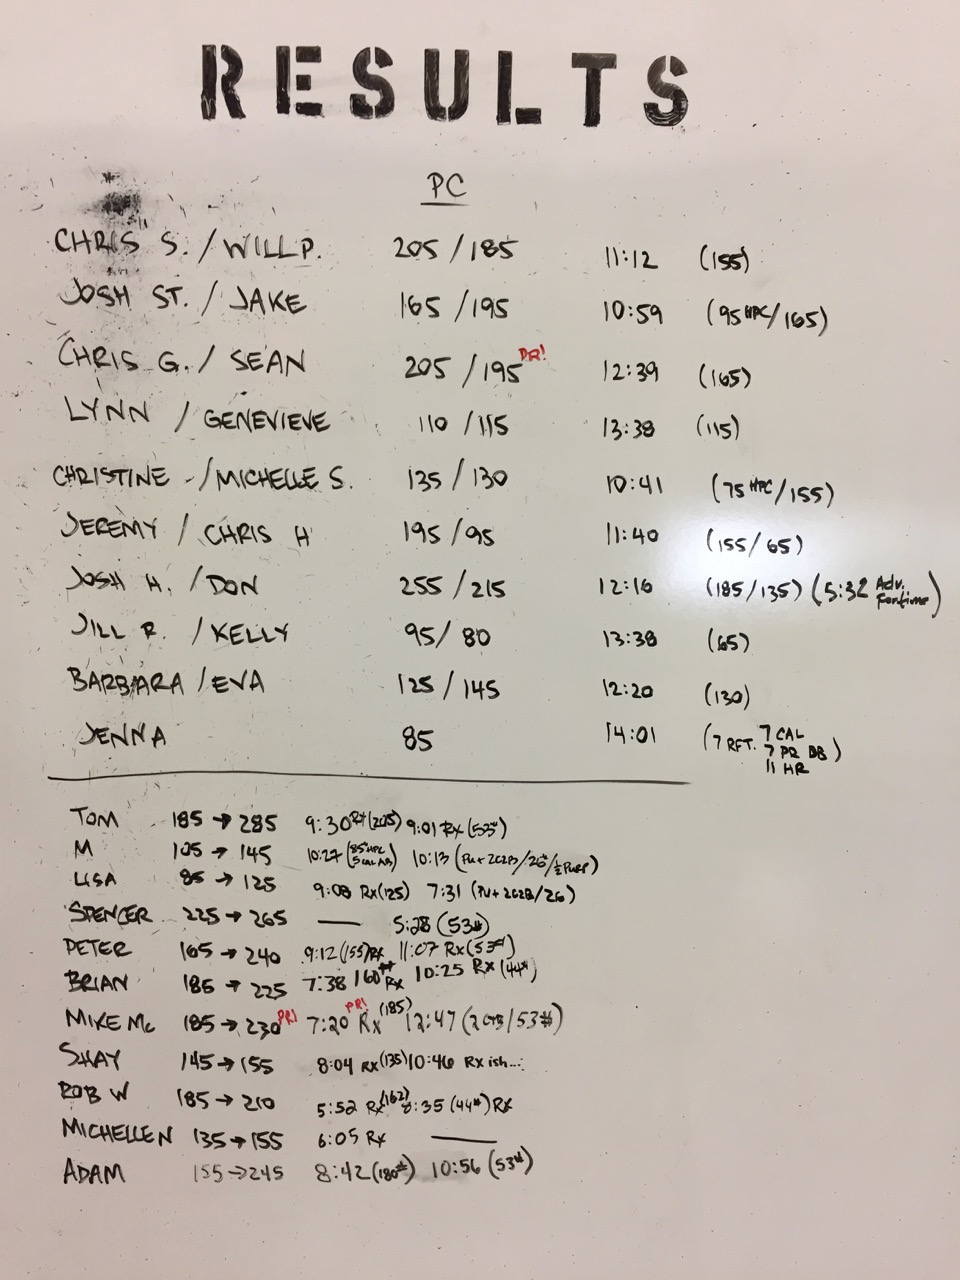 RESULTS
PC
CHRIS S. / WILL P. 205 / 185 11:12 (155)
JOSH ST. / JAKE 165 / 195 10:59 (95 HPC/165)
CHRIS G. / SEAN 205 / 195 PR! 12:39 (165)
LYNN / GENEVIEVE 110 / 115 13:38 (115)
CHRISTINE / MICHELLE S. 135 / 130 10:41 (75 HPC/155)
JEREMY / CHRIS H 195 / 95 11:40 (155/65)
JOSH H. / DON 255 / 215 12:16 (185/135) (5:32 Adv. For time)
JILL R. / KELLY 95 / 80 13:38 (65)
BARBARA / EVA 125 / 145 12:20 (130)
JENNA 85 14:01 (7 RFT. 7 CAL
7 PR DB)
11 HR
TOM 185 → 285 9:30 Rx (205) 9:01 Rx (53#)
M 105 → 145 10:27 (85# HPC 5 CAL AB) 10:13 (PU + 2C2B/26#/½ PURP)
LISA 85 → 125 9:08 Rx (125) 7:31 (PU + 2C2B/26)
SPENCER 225 → 265 — 5:28 (53#)
PETER 165 → 240 9:12 (155) Rx 11:07 Rx (53#)
BRIAN 185 → 225 7:38 160# Rx 10:25 Rx (44#)
MIKE Mc 185 → 230 PR! 7:20 PR! Rx (185) 12:47 (2CTB/53#)
SHAY 145 → 155 8:04 Rx (135) 10:46 Rx ish...
ROB W 185 → 210 5:52 Rx (162) :35 (44#) Rx
MICHELLE N 135 → 155 6:05 Rx —
ADAM 155 → 245 8:42 (180#) 10:56 (53#)